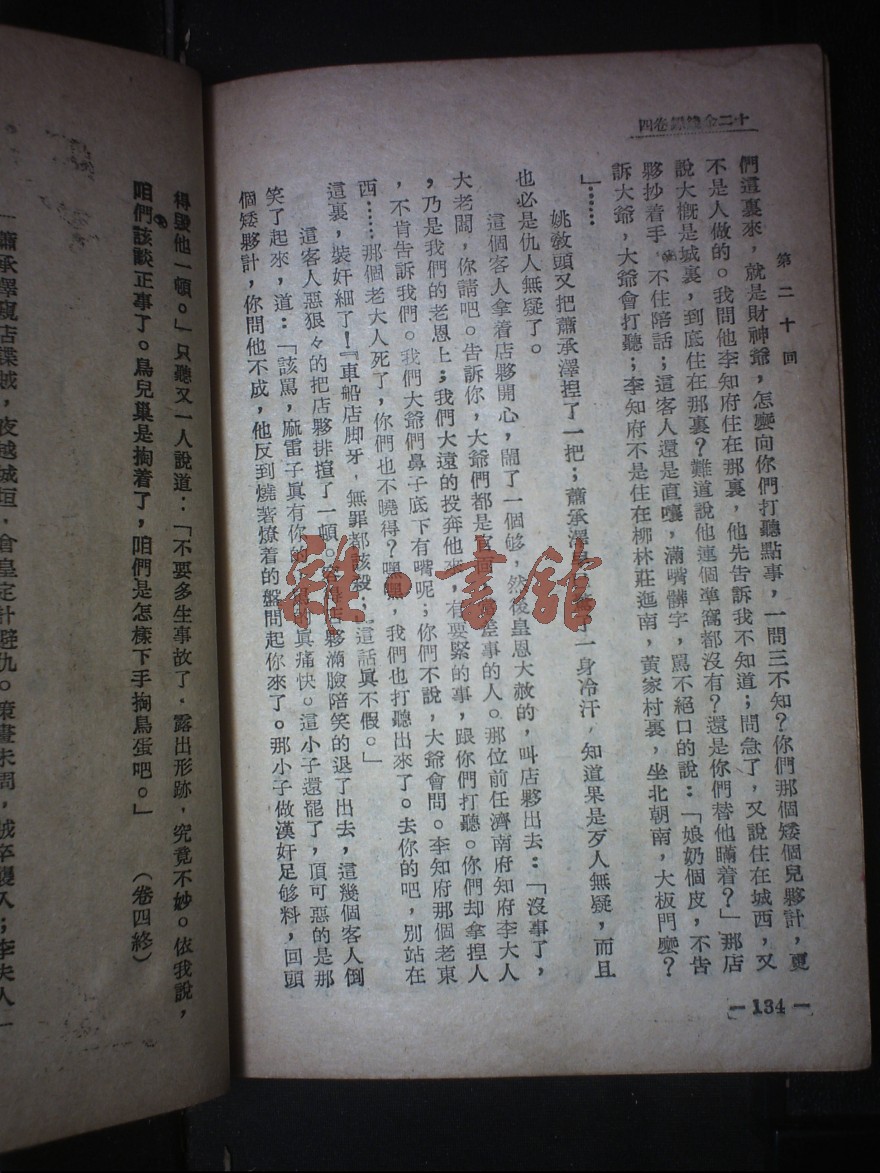 十二金錢鏢卷四
第二十回
們這裏來，就是財神爺，怎麼向你們打聽點事，一問三不知？你們那個矮個兒夥計，更
不是人做的。我問他李知府住在那裏，他先告訴我不知道；問急了，又說住在城西，又
說大概是城裏，到底住在那裏？難道說他連個準窩都沒有？還是你們替他瞞着？」那店
夥抄着手，不住陪話；這客人還是直嚷，滿嘴髒字，罵不絕口的說：「娘奶個皮，不告
訴大爺，大爺會打聽；李知府不是住在柳林莊迤南，黃家村裏，坐北朝南，大板門麼？
」……
姚教頭又把蕭承澤捏了一把；蕭承澤 一身冷汗，知道果是歹人無疑，而且
也必是仇人無疑了。
這個客人拿着店夥開心，鬧了一個够，然後皇恩大赦的，叫店夥出去：「沒事了，
大老闆，你請吧。告訴你，大爺們都是官面 差事的人。那位前任濟南府知府李大人
，乃是我們的老恩上；我們大遠的投奔他來，有要緊的事，跟你們打聽。你們却拿捏人
，不肯告訴我們。我們大爺們鼻子底下有嘴呢；你們不說，大爺會問。李知府那個老東
西……那個老大人死了，你們也不曉得？嘿嘿，我們也打聽出來了。去你的吧，別站在
這裏，裝奸細了！『車船店脚牙，無罪都該殺；』這話眞不假。」
這客人惡狠々的把店夥排揎了一頓。 店夥滿臉陪笑的退了出去，這幾個客人倒
笑了起來，道：「該罵，麻雷子眞有你的， 眞痛快。這小子還罷了，頂可惡的是那
個矮夥計，你問他不成，他反到燒著燎着的盤問起你來了。那小子做漢奸足够料，回頭
— 134 —
得毀他一頓。」只聽又一人說道：「不要多生事故了。露出形跡，究竟不妙。依我說，
咱們該談正事了。鳥兒巢是掏着了，咱們是怎樣下手掏鳥蛋吧。」 （卷四終）
蕭承澤窺店諜賊，夜越城垣，倉皇定計避仇。策畫未周，賊卒襲入；李夫人一
雜·書館